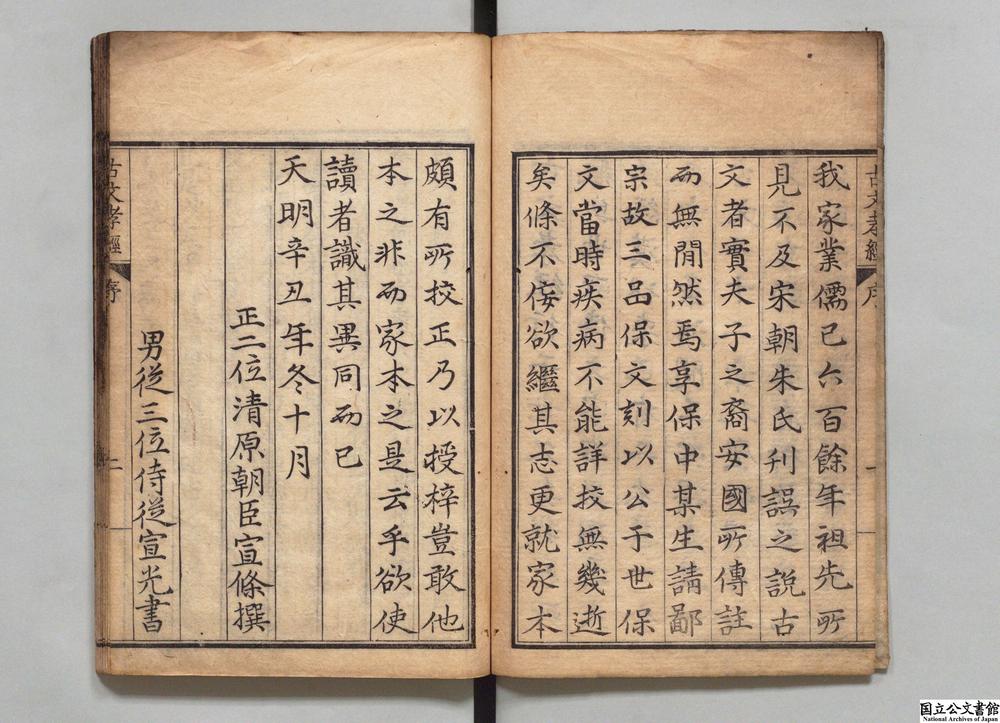 古文孝經 序 一
我家業儒已六百餘年祖先所
見不及宋朝朱氏刋誤之說古
文者實夫子之裔安國所傳註
而無閒然焉享保中某生請鄙
宗故三品保文刻以公于世保
文當時疾病不能詳挍無幾逝
矣條不侫欲繼其志更就家本
頗有所挍正乃以授梓豈敢他
本之非而家本之是云乎欲使
讀者識其異同而已
天明辛丑年冬十月
正二位清原朝臣宣條撰
男從三位侍從宣光書
古文孝經 序 二
国立公文書館
National Archives of Japan